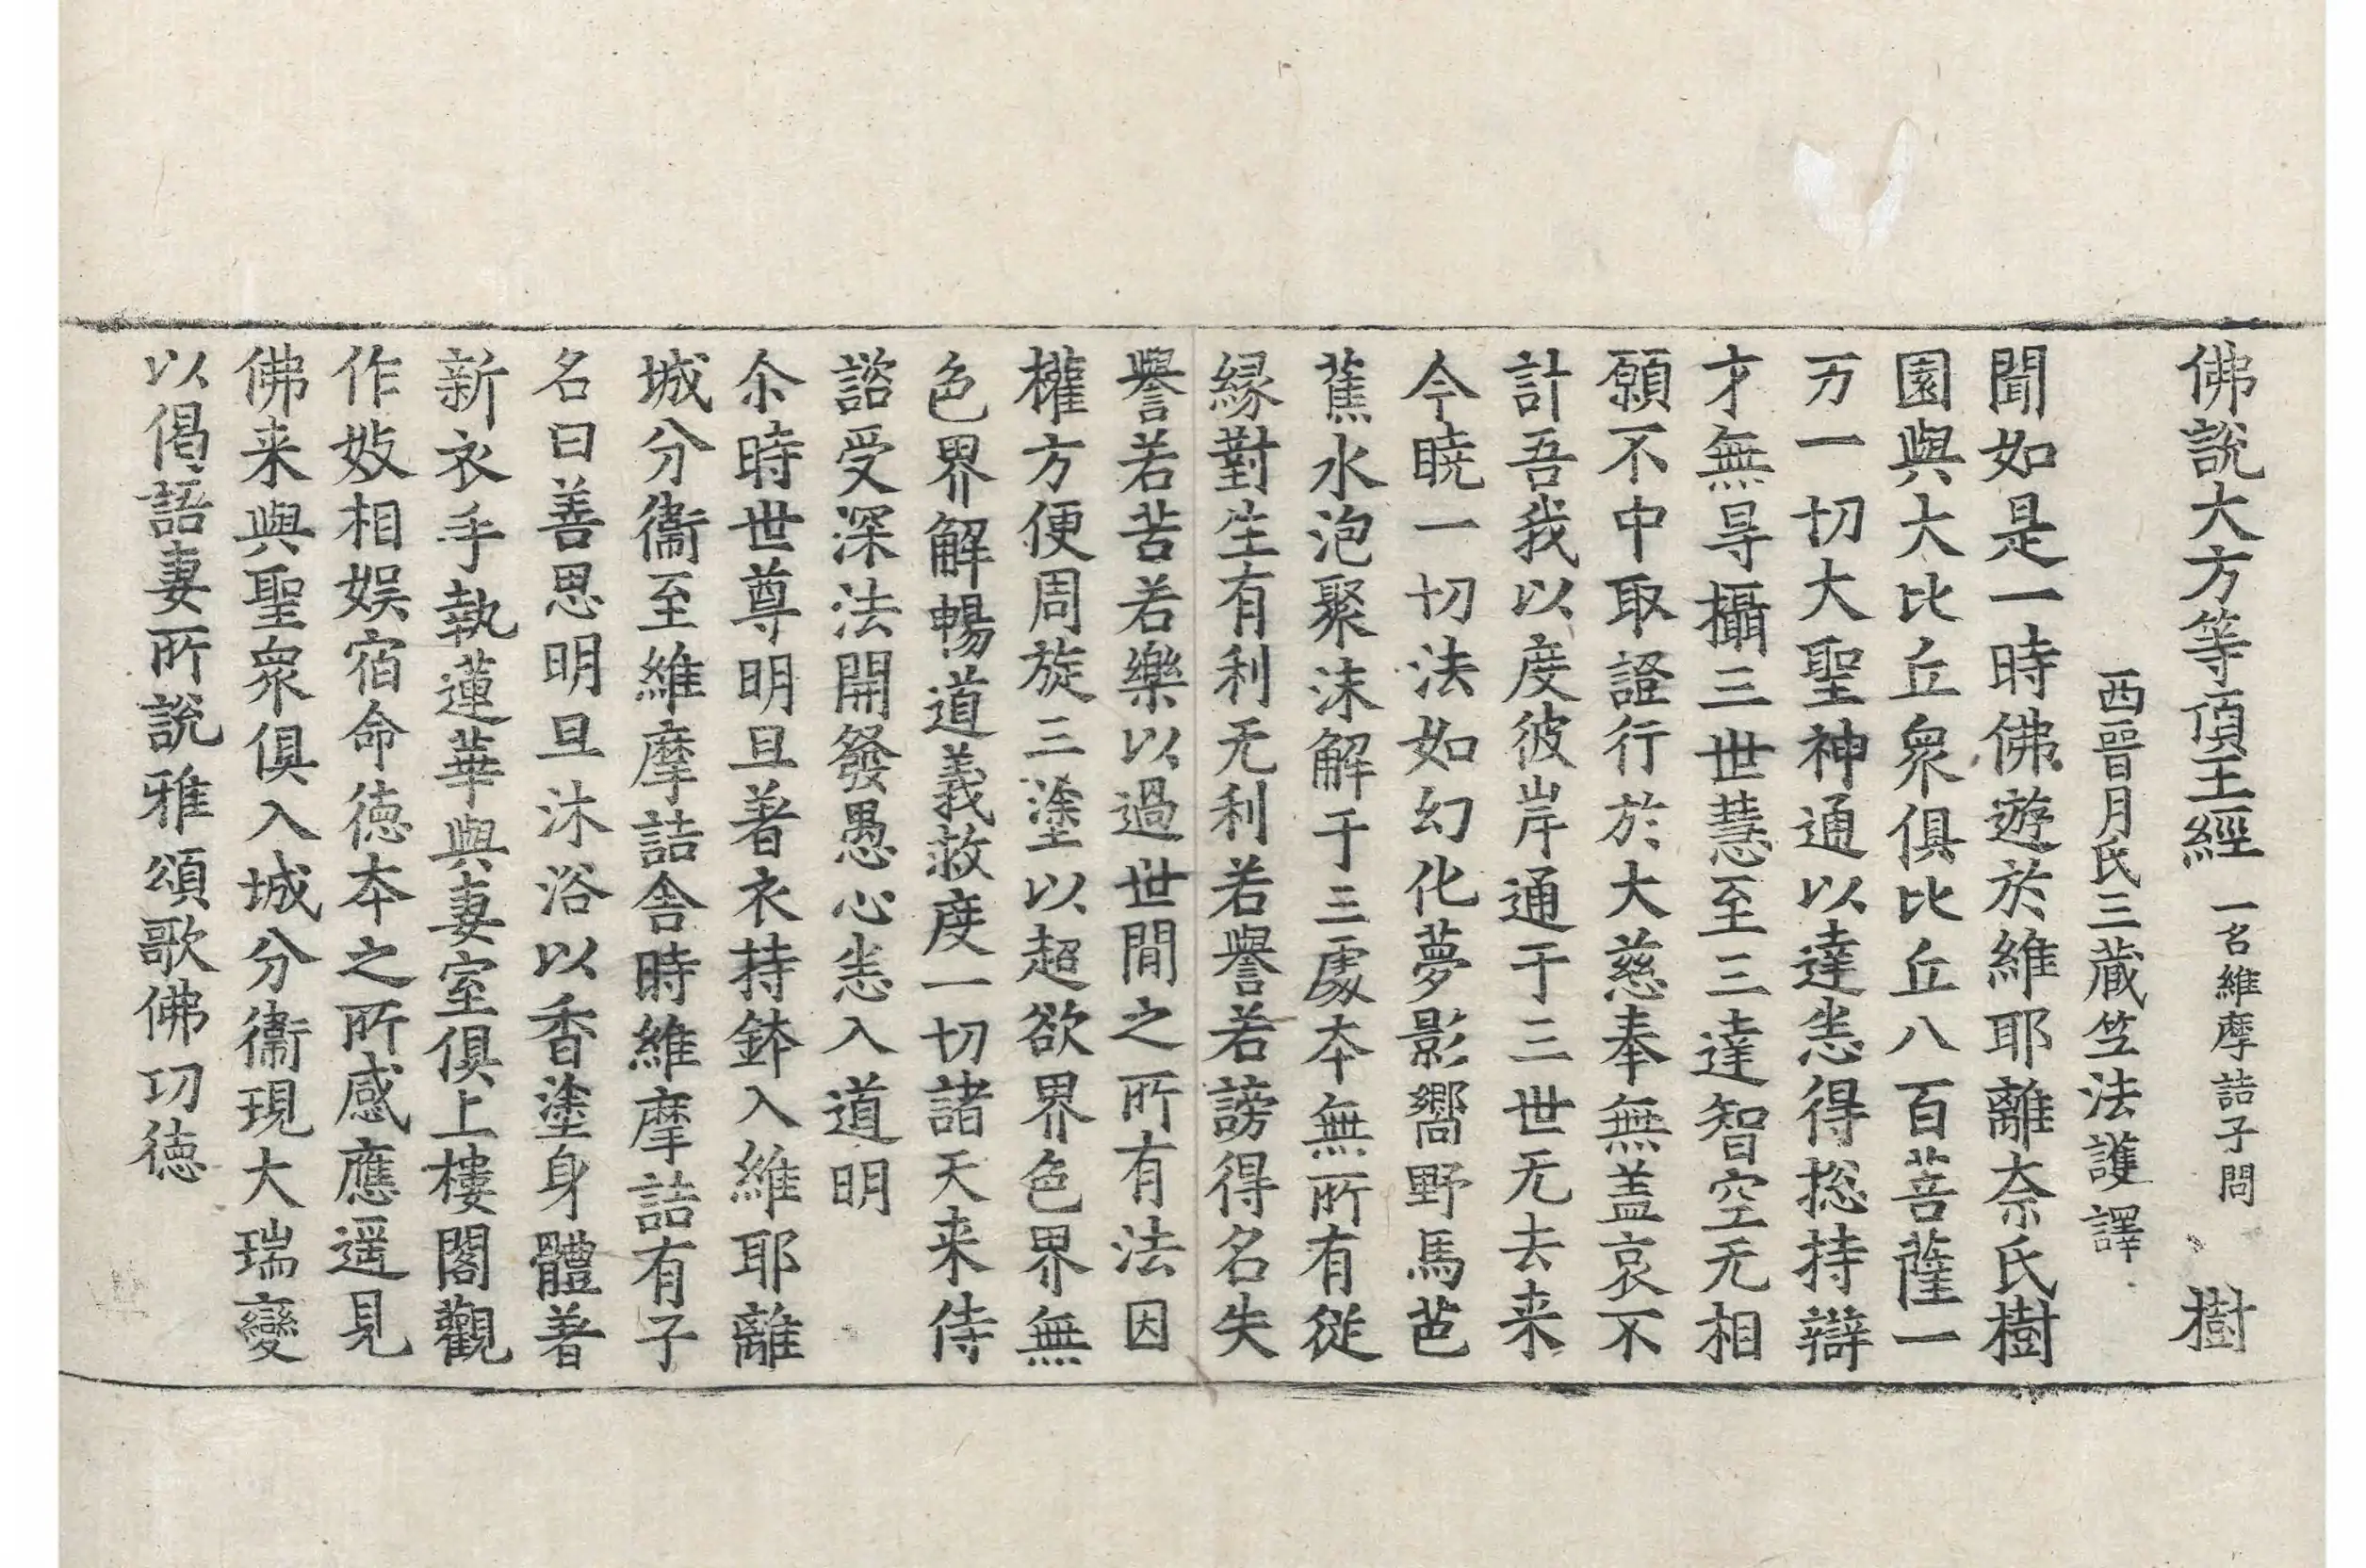 佛說大方等頂王經 一名維摩詰子問 樹
西晉月氏三藏竺法護譯
聞如是一時佛遊於維耶離柰氏樹
園與大比丘衆俱比丘八百菩薩一
万一切大聖神通以達悉得捴持辯
才無㝵攝三世慧至三達智空无相
願不中取證行於大慈奉無盖哀不
計吾我以度彼岸通于三世无去来
今曉一切法如幻化夢影嚮野馬芭
蕉水泡聚沫解于三處本無所有從
緣對生有利无利若譽若謗得名失
譽若苦若樂以過世閒之所有法因
權方便周旋三塗以超欲界色界無
色界解暢道義救度一切諸天来侍
諮受深法開發愚心悉入道明
尒時世尊明旦著衣持鉢入維耶離
城分衞至維摩詰舍時維摩詰有子
名曰善思明旦沐浴以香塗身體著
新衣手執蓮華與妻室俱上樓閣觀
作妓相娛宿命德本之所感應遥見
佛来與聖衆俱入城分衞現大瑞變
以偈語妻所說雅頌歌佛功德